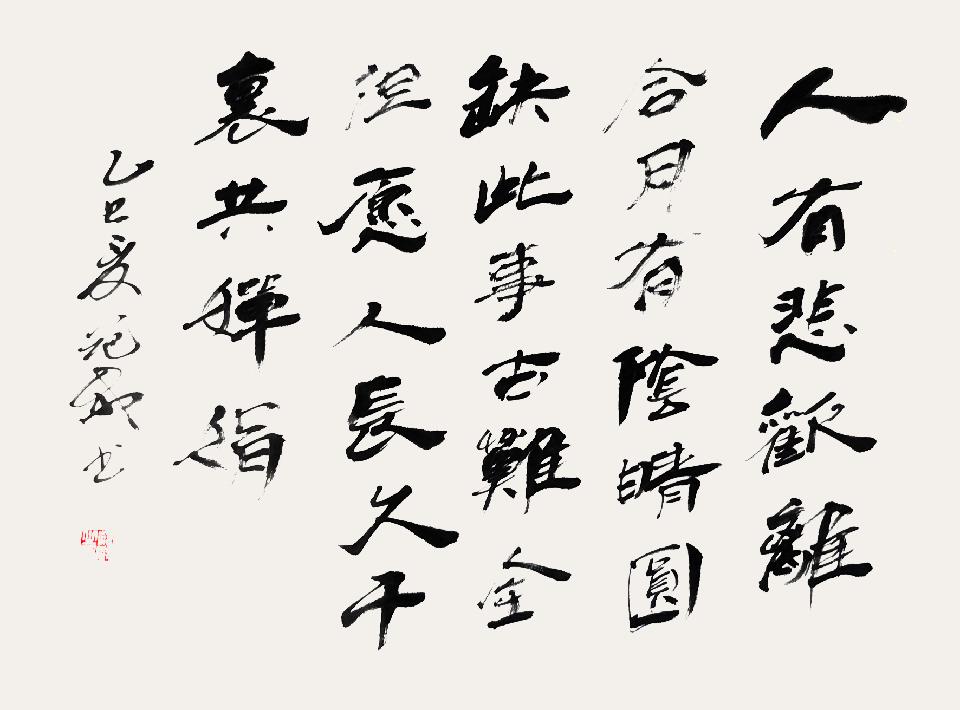 人有悲歡離
合月有陰晴圓
缺此事古難全
但愿人長久千
裏共嬋娟
乙巳夏范书